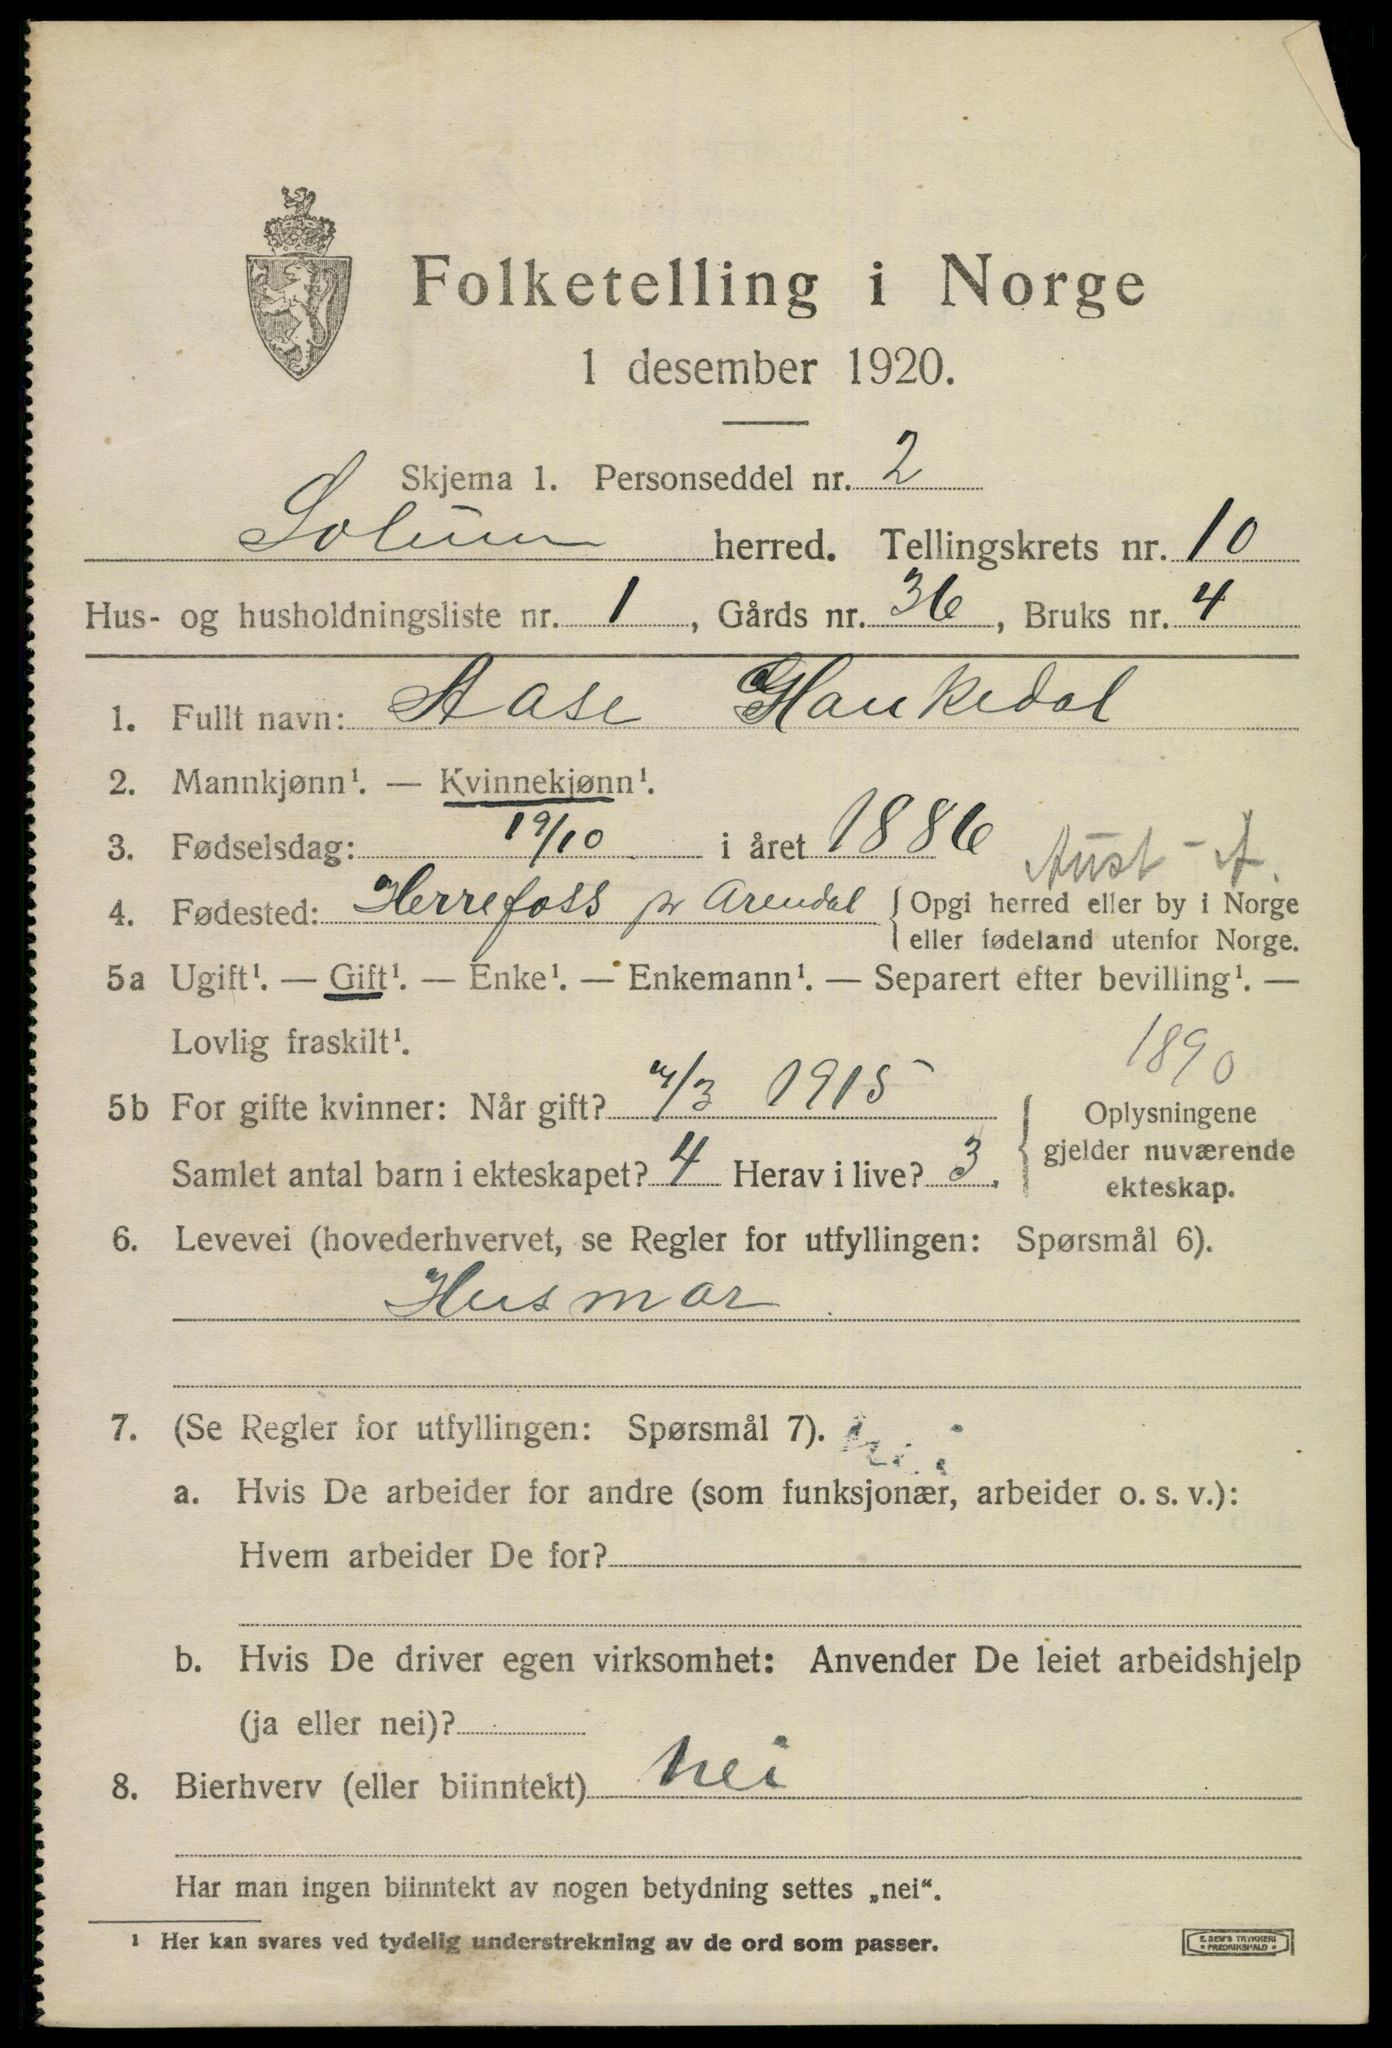 Folketelling i Norge
1 desember 1920.
Skjema 1. Personseddel nr. 2
Solum herred. Tellingskrets nr. 10
Hus- og husholdningsliste nr. 1, Gårds nr. 36, Bruks nr. 4
1. Fullt navn: Aase Haukedal
2. Mannkjønn¹. — Kvinnekjønn¹.
3. Fødselsdag: 19/10 i året 1886
Aust-A.
4. Fødested: Herrefoss pr Arendal { Opgi herred eller by i Norge
eller fødeland utenfor Norge.
5a Ugift¹. — Gift¹. — Enke¹. — Enkemann¹. — Separert efter bevilling¹. —
Lovlig fraskilt¹.
1890
5b For gifte kvinner: Når gift? /3 1915
Samlet antal barn i ekteskapet? 4 Herav i live? 3.
{ Oplysningene
gjelder nuværende
ekteskap.
6. Levevei (hovederhvervet, se Regler for utfyllingen: Spørsmål 6).
Husmor
7. (Se Regler for utfyllingen: Spørsmål 7). nei
a. Hvis De arbeider for andre (som funksjonær, arbeider o. s. v.):
Hvem arbeider De for?
b. Hvis De driver egen virksomhet: Anvender De leiet arbeidshjelp
(ja eller nei)?
8. Bierhverv (eller biinntekt) nei
Har man ingen biinntekt av nogen betydning settes „nei“.
¹ Her kan svares ved tydelig understrekning av de ord som passer.
E. SEM'S TRYKKERI
• FREDRIKSHALD •